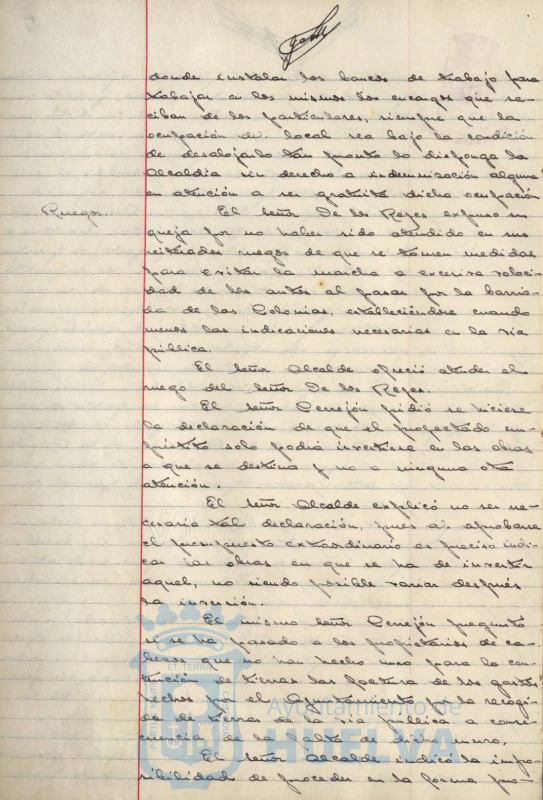 donde instalar los bancos de trabajo para
trabajar en los mismos los encargos que re-
ciban de los particulares, siempre que la
ocupación del local sea bajo la condición
de desalojarlo tan pronto lo disponga la
Alcaldía sin derecho a indemnización alguna
en atención a ser gratuita dicha ocupación
Ruegos.
El señor De los Reyes expuso su
queja por no haber sido atendido en sus
reiterados ruegos de que se tomen medidas
para evitar la marcha a excesiva veloci-
dad de los autos al pasar por la barria-
da de las Colonias, estableciéndose cuando
menos las indicaciones necesarias en la vía
pública.
El señor Alcalde ofreció atender el
ruego del señor De los Reyes.
El señor Cerrejón pidió se hiciera
la declaración de que el proyectado em-
préstito solo podrá invertirse en las obras
a que se destina y no a ninguna otra
atención.
El señor Alcalde explicó no ser ne-
cesaria tal declaración, pues al aprobarse
el presupuesto extraordinario es preciso indi-
car las obras en que se ha de invertir
aquel, no siendo posible variar después
la inversión.
El mismo señor Cerrejón preguntó
si se ha pasado a los propietarios de ca-
bezos que no han hecho muro para la con-
tención de tierras las factura de los gastos
hechos por el Ayuntamiento en la recogi-
da de tierras de la vía pública a conse-
cuencia de la falta de dicho muro.
El señor Alcalde indicó la impo-
sibilidad de proceder en la forma pro-
ET TERRA
Ayuntamiento de
HUELVA